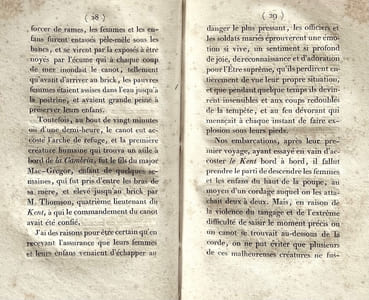 ( 28 )
forcer de rames, les femmes et les en-
fans furent entassés pêle-mêle sous les
bancs, et se virent par là exposés à être
noyés par l'écume qui à chaque coup
de mer inondait le canot, tellement
qu'avant d'arriver au brick, les pauvres
femmes étaient assises dans l'eau jusqu'à
la poitrine, et avaient grande peine à
préserver leurs enfans.
Toutefois, au bout de vingt minutes
ou d'une demi-heure, le canot eut ac-
costé l'arche de refuge, et la première
créature humaine qui trouva un asile à
bord de la Cambria, fut le fils du major
Mac-Grégor, enfant de quelques se-
maines, qui fut pris d'entre les bras de
sa mère, et élevé jusqu'au brick par
M. Thomson, quatrième lieutenant du
Kent, à qui le commandement du canot
avait été confié.
J'ai des raisons pour être certain qu'en
recevant l'assurance que leurs femmes
et leurs enfans venaient d'échapper au
( 29 )
danger le plus pressant, les officiers et
les soldats mariés éprouvèrent une émo-
tion si vive, un sentiment si profond
de joie, de reconnaissance et d'adoration
pour l'Être suprême, qu'ils perdirent en-
tièrement de vue leur propre situation,
et que pendant quelque temps ils devin-
rent insensibles et aux coups redoublés
de la tempête, et au feu dévorant qui
menaçait à chaque instant de faire ex-
plosion sous leurs pieds.
Nos embarcations, après leur pre-
mier voyage, ayant essayé en vain d'ac-
coster le Kent bord à bord, il fallut
prendre le parti de descendre les femmes
et les enfans du haut de la poupe, au
moyen d'un cordage auquel on les atta-
chait deux à deux. Mais, en raison de
la violence du tangage et de l'extrême
difficulté de saisir le moment précis où
un canot se trouvait au-dessous de la
corde, on ne put éviter que plusieurs
de ces malheureuses créatures ne fus-